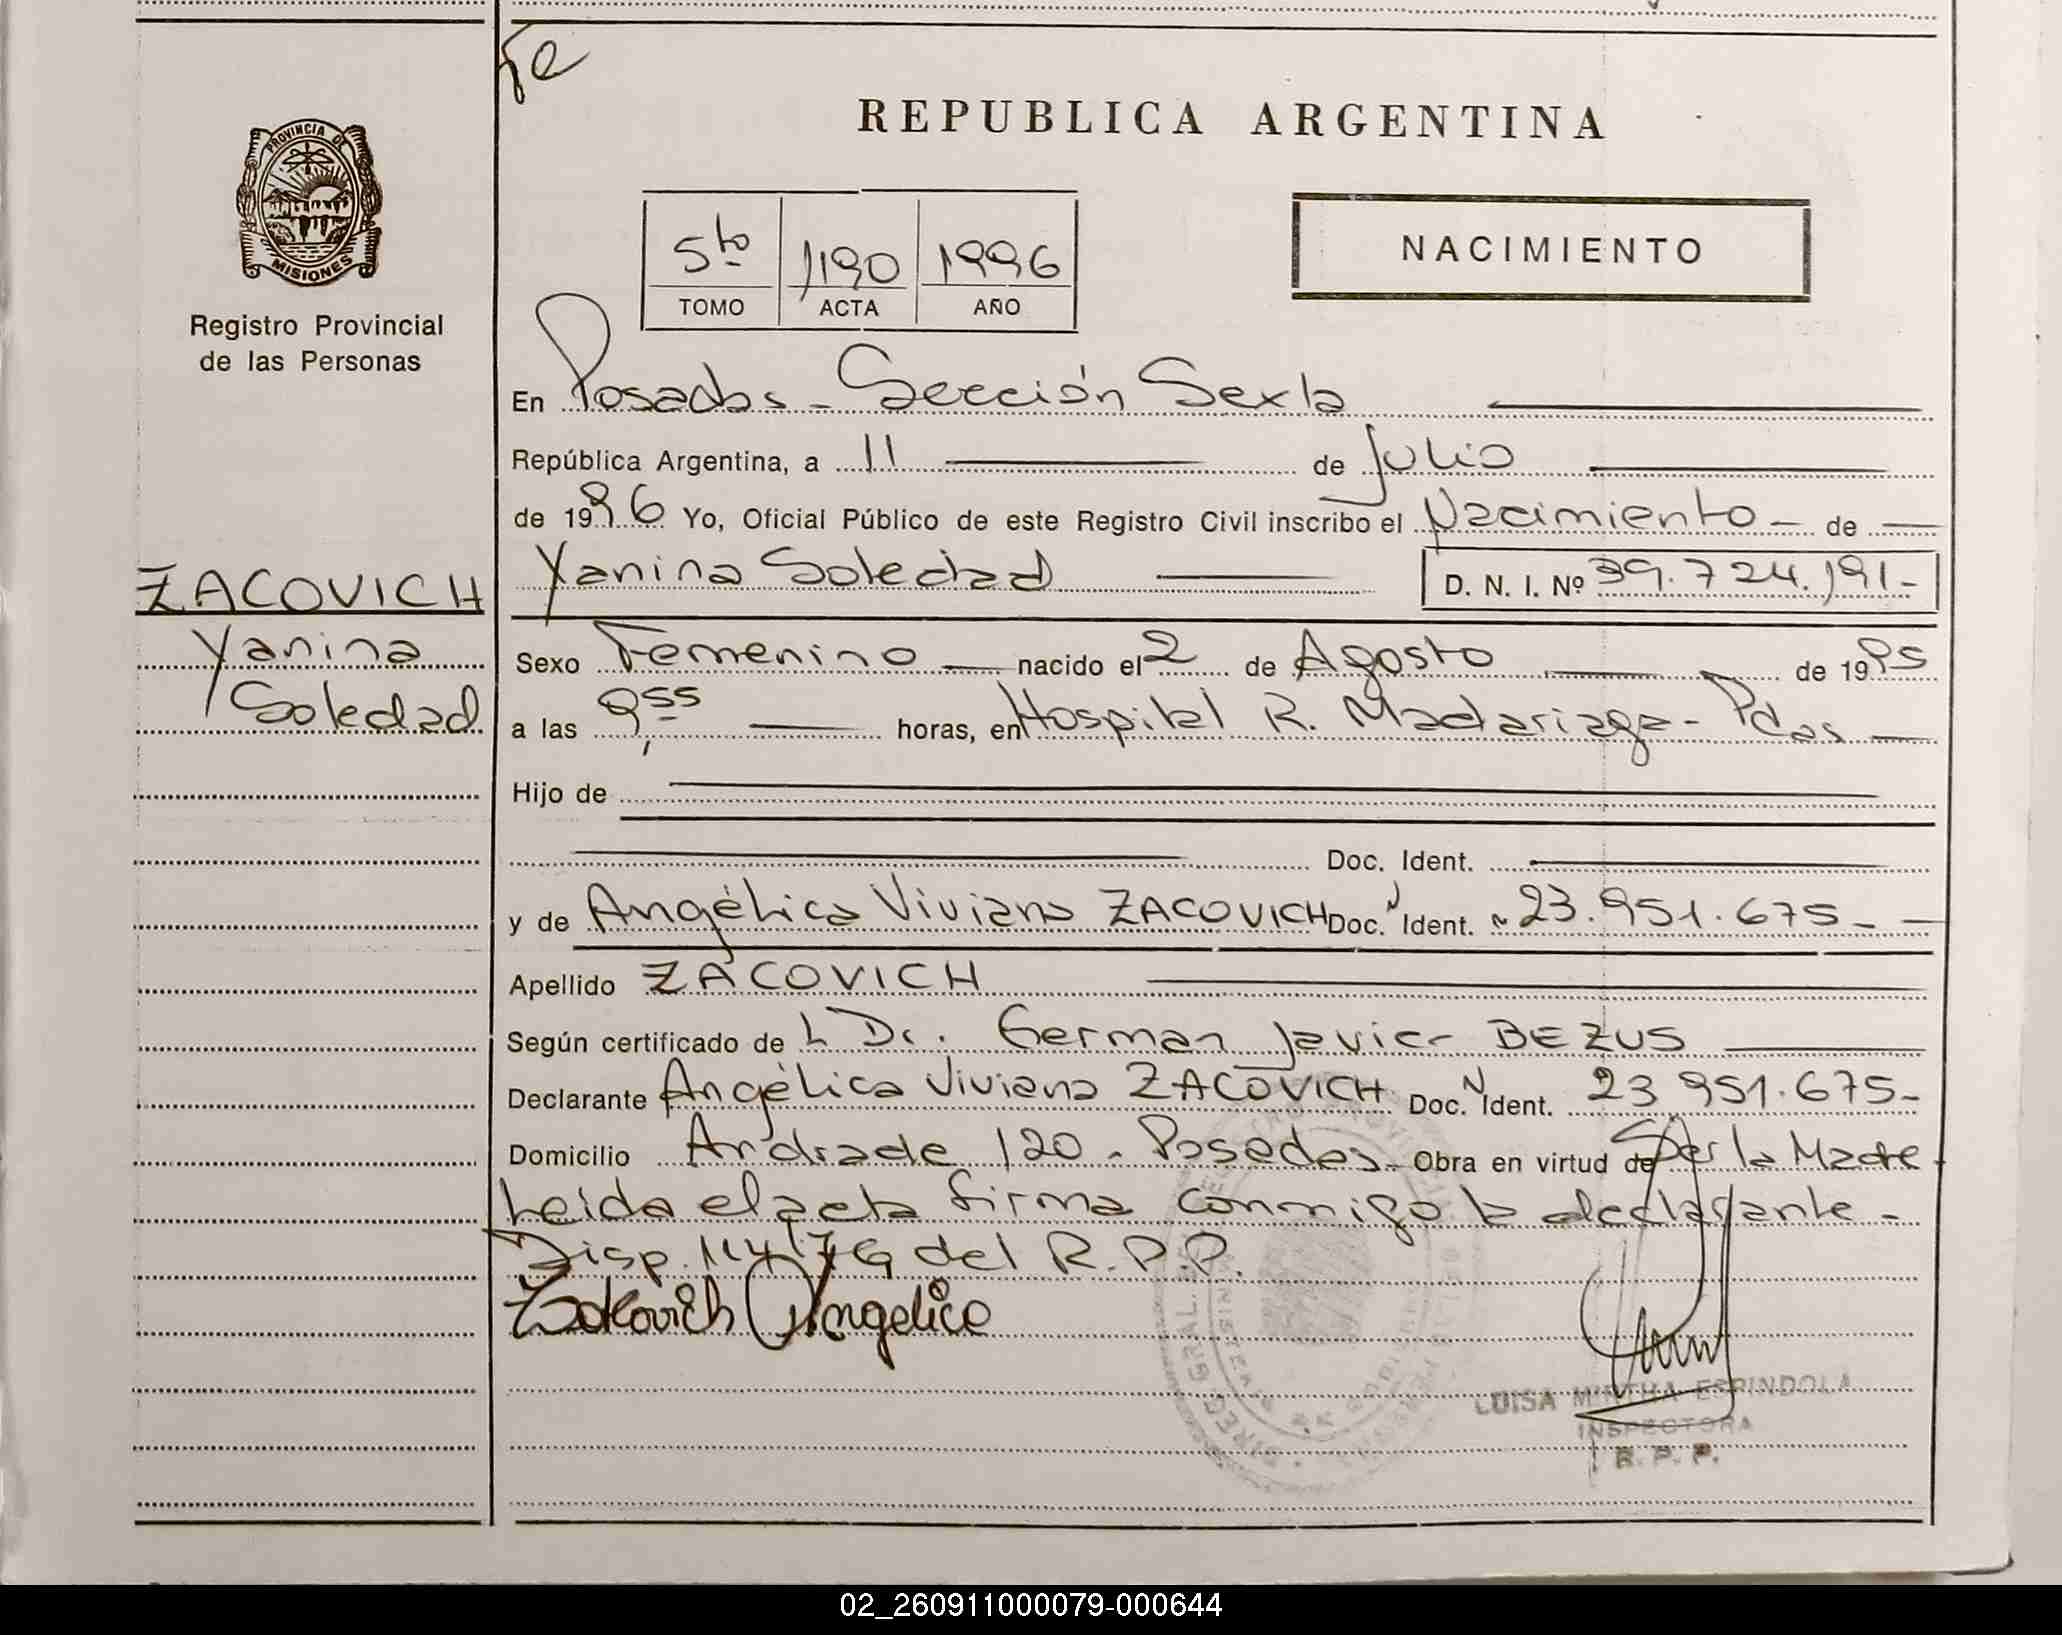 REPUBLICA ARGENTINA
PROVINCIA DE
MISIONES
Registro Provincial
de las Personas
5to 1190 1996
TOMO ACTA AÑO
NACIMIENTO
En Posadas - Sección Sexta
República Argentina, a 11 de Julio
de 1996 Yo, Oficial Público de este Registro Civil inscribo el Nacimiento - de
ZACOVICH
Yanina
Soledad
Yanina Soledad D. N. I. Nº 39.724.191-
Sexo Femenino nacido el 2 de Agosto de 1995
a las 9,55 horas, en Hospital R. Madariaga - Pdas
Hijo de
Doc. Ident.
y de Angélica Viviana ZACOVICH Doc. N Ident. 23.951.675-
Apellido ZACOVICH
Según certificado de L Dr. German Javier BEZUS
Declarante Angélica Viviana ZACOVICH Doc. N Ident. 23 951.675-
Domicilio Andrade 120 - Posadas - Obra en virtud de Ser la Madre.
Leida el acta firma conmigo la declarante -
Disp. 114/76 del R.P.P.
Zakovich Angelica
LUISA MIRTHA ESPINDOLA
INSPECTORA
R. P. P.
02_260911000079-000644